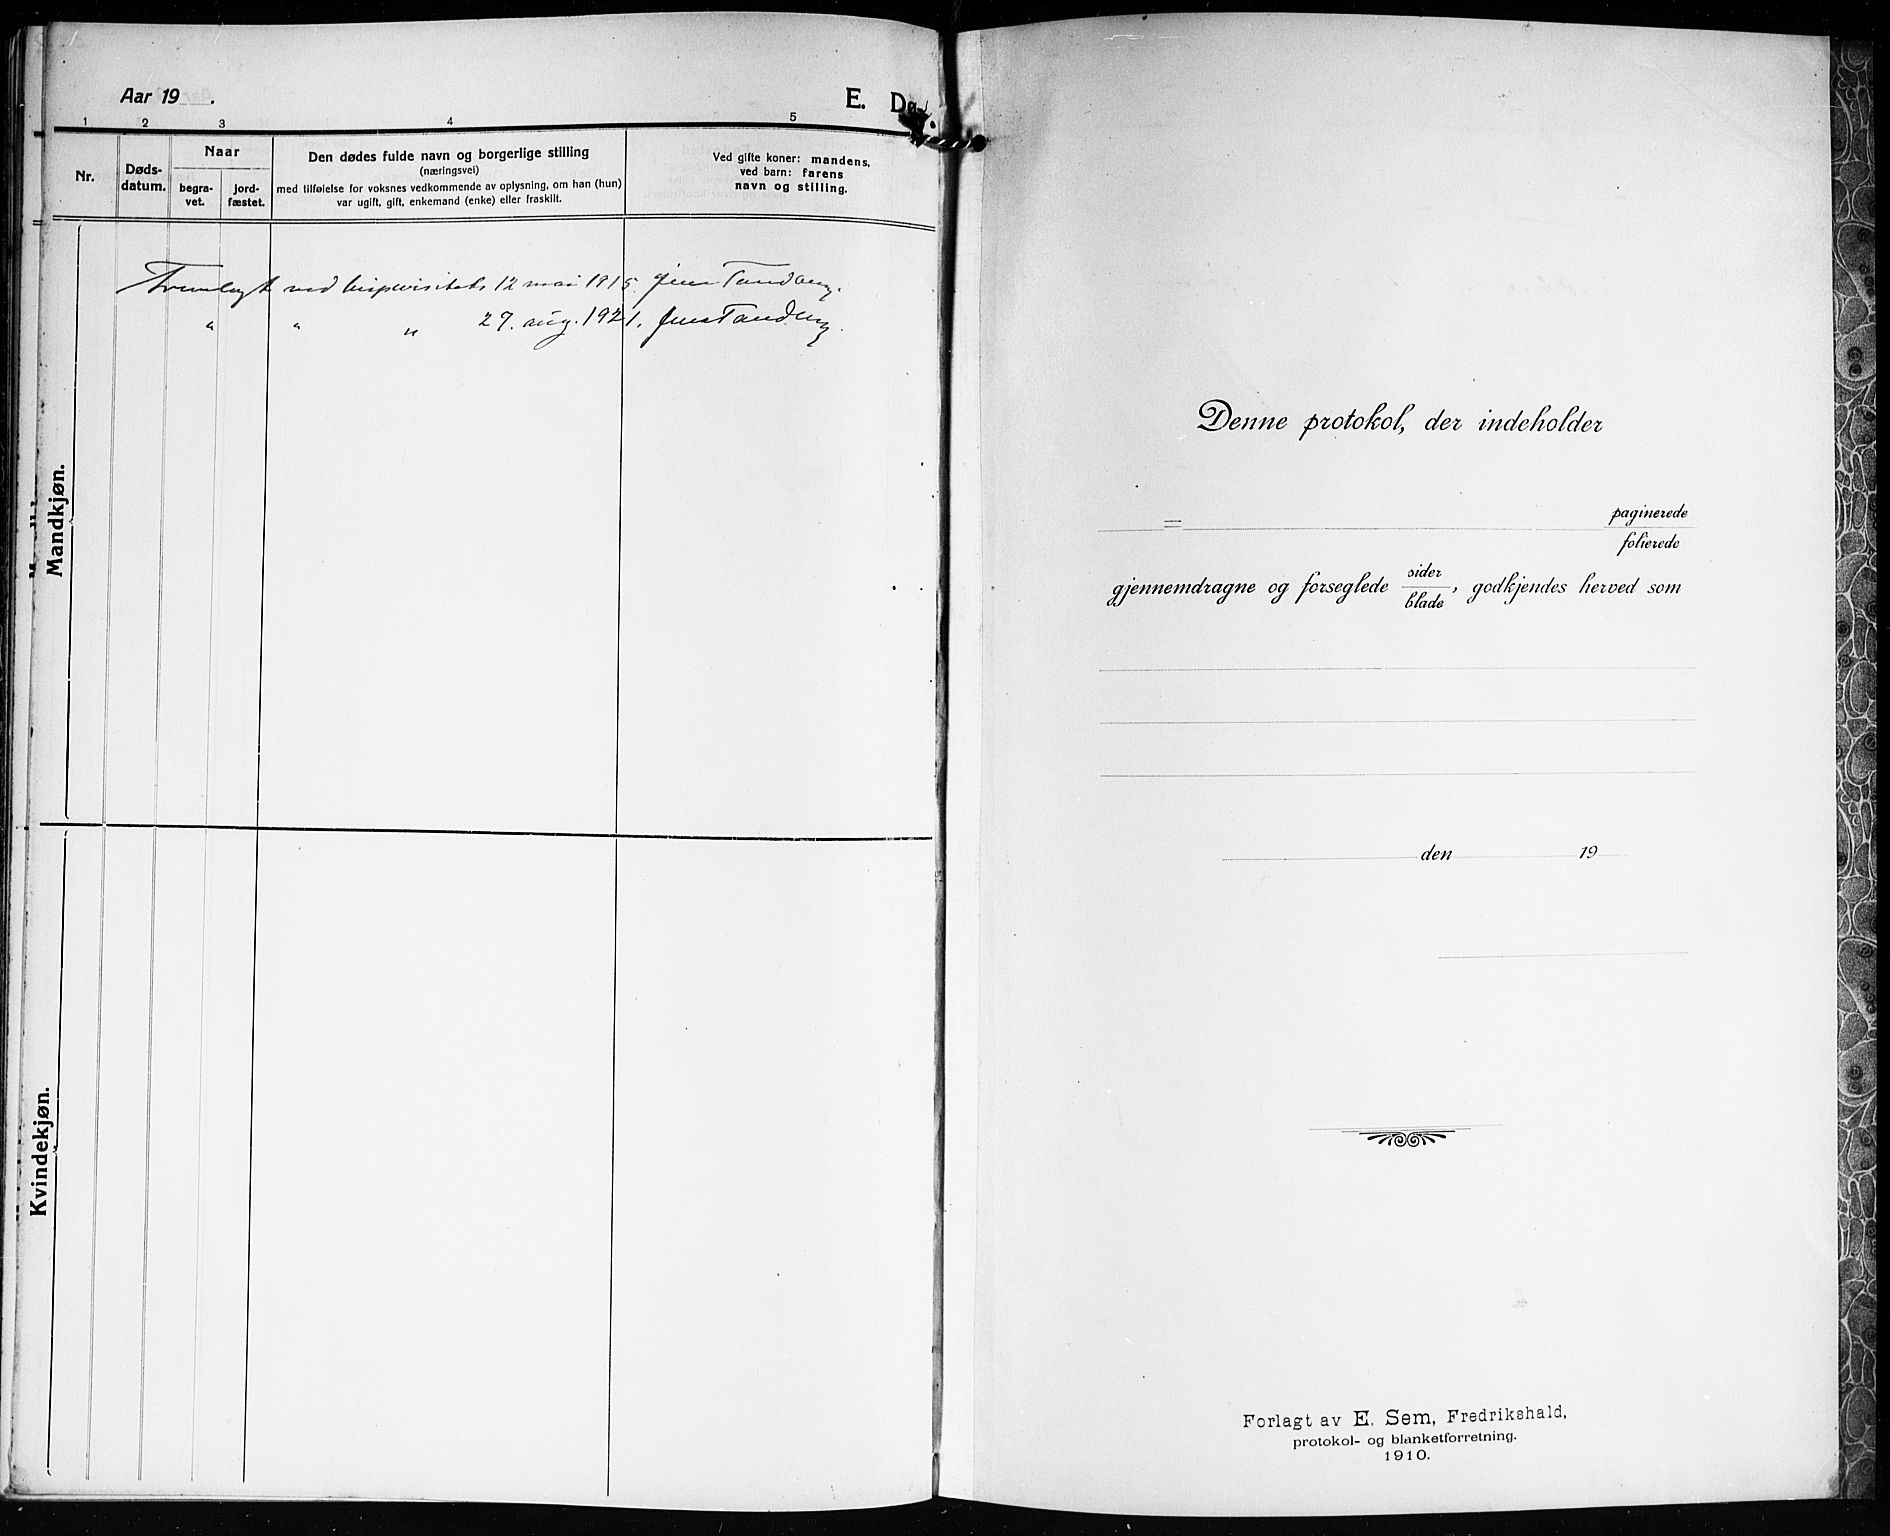 Aar 19 .
E. Dø
1 2 3 4 5
Nr.
Døds-
datum.
Naar
begra-
vet.
jord-
fæstet.
Den dødes fulde navn og borgerlige stilling
(næringsvei)
med tilføielse for voksnes vedkommende av oplysning, om han (hun)
var ugift, gift, enkemand (enke) eller fraskilt.
Ved gifte koner: mandens,
ved barn: farens
navn og stilling.
Fremlagt ved bispevisitats 12 mai 1915. Jens Tandberg.
" " " 27. aug. 1921. Jens Tandberg.
Mandkjøn.
Kvindekjøn.
Denne protokol, der indeholder
= paginerede
folierede
gjennemdragne og forseglede sider/blade, godkjendes herved som
den 19
Forlagt av E. Sem, Fredrikshald,
protokol- og blanketforretning.
1910.